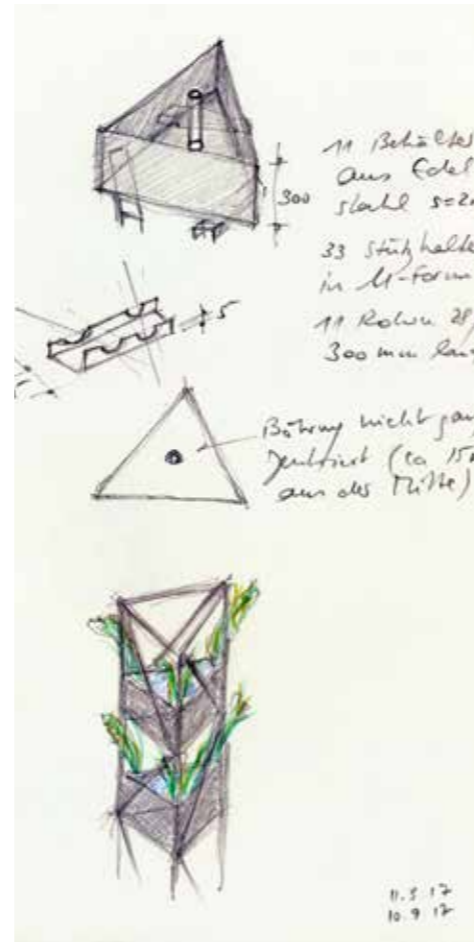 11 Behälter
aus Edel
stahl s=2
300
33 Stützhalte
in U-Form
5
11 Rohre 28
300 mm lang
Bohrung nicht gan
zentriert (ca 15
aus der Mitte)
11.5 17
10.9 17